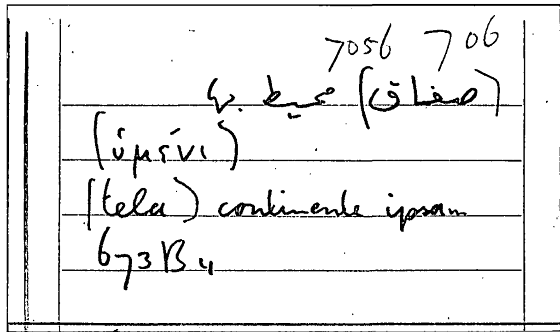 7056 706
(صفاق) محيط بها
(ὑμένι)
(tela) continente ipsam
673B 4